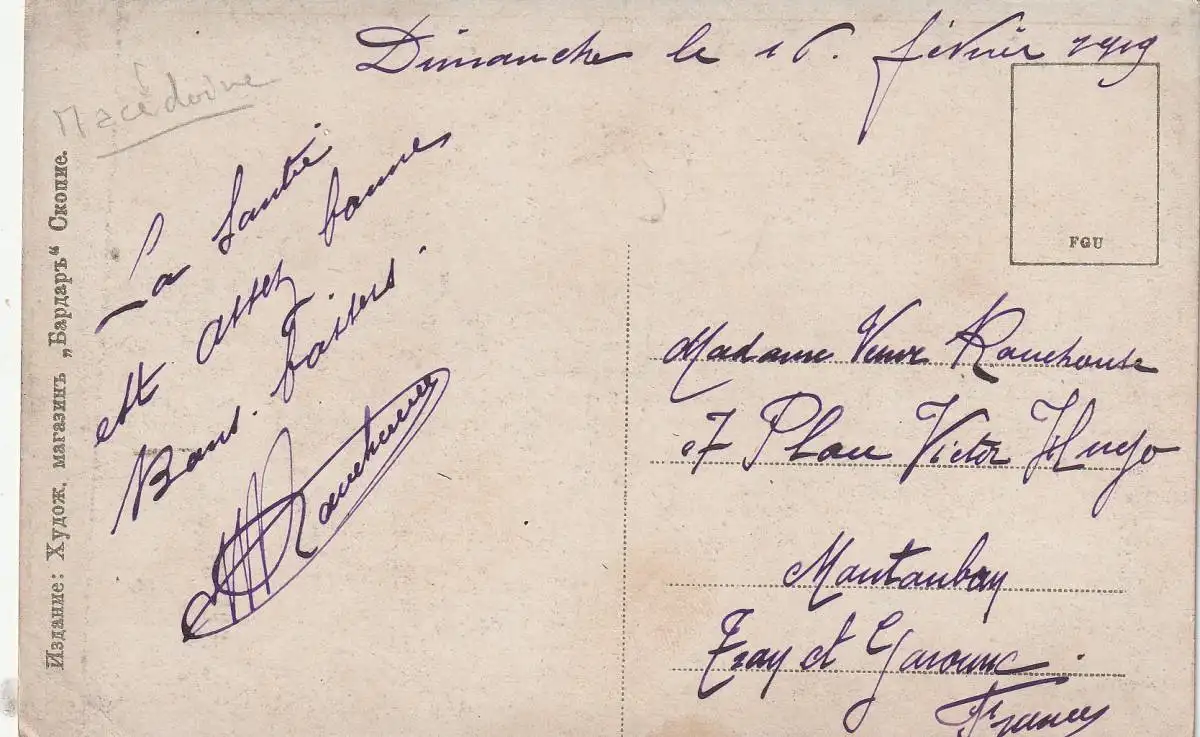 Dimanche le 16. février 1919
Macédoine
La Santé
est assez bonne
Bons. baisers.
Rauchouse
FGU
Madame Veuve Rauchouse
7 Place Victor Hugo
Montauban
Tarn et Garonne.
France
Издание: Худож. магазинъ „Вардаръ“ Скопие.